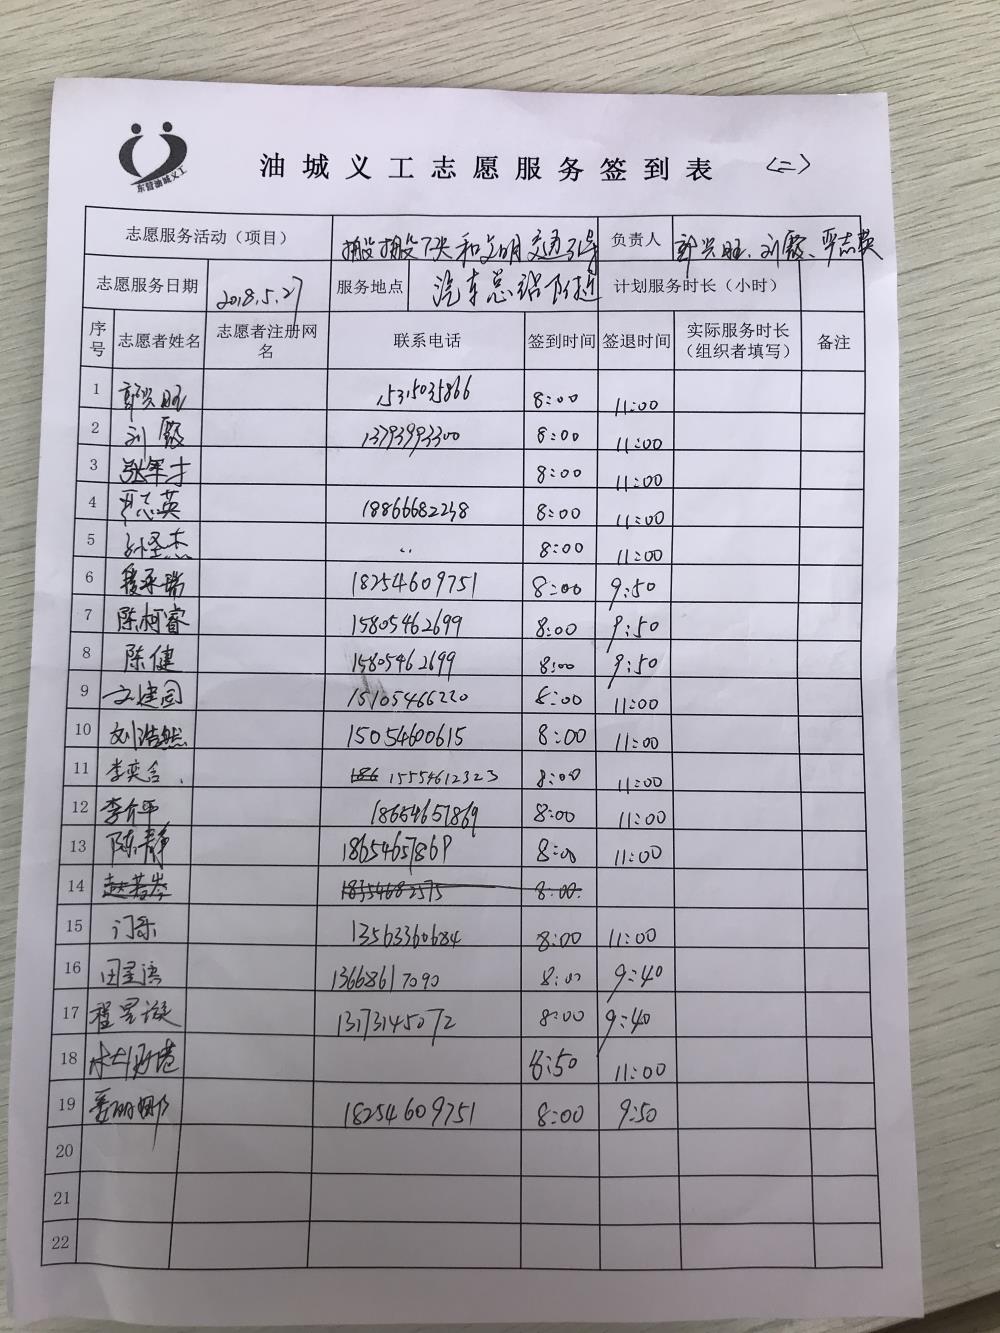 东营油城义工
油城义工志愿服务签到表 <二>
志愿服务活动（项目） 搬搬下决和文明交通引导 负责人 郭兴旺、刘霞、严志英
志愿服务日期 2018.5.27 服务地点 汽车总站附近 计划服务时长（小时）
序号 志愿者姓名 志愿者注册网名 联系电话 签到时间 签退时间 实际服务时长（组织者填写） 备注
1 郭兴旺 15315035866 8:00 11:00
2 刘霞 13793993300 8:00 11:00
3 张军才 8:00 11:00
4 严志英 18866682238 8:00 11:00
5 孙圣杰 .. 8:00 11:00
6 18254609751 8:00 9:50
7 陈柯睿 15805462699 8:00 9:50
8 陈健 15805462699 8:00 9:50
9 文建国 15105466220 8:00 11:00
10 刘浩然 15054600615 8:00 11:00
11 李奕含 186 15554612323 8:00 11:00
12 李介平 18654657869 8:00 11:00
13 陈静 18654657869 8:00 11:00
14 赵若岑 18354682575 8:00
15 门乐 13563360684 8:00 11:00
16 田星语 13668617090 8:00 9:40
17 程昱璇 13173145072 8:00 9:40
18 8:50 11:00
19 姜丽娜 18254609751 8:00 9:50
20
21
22